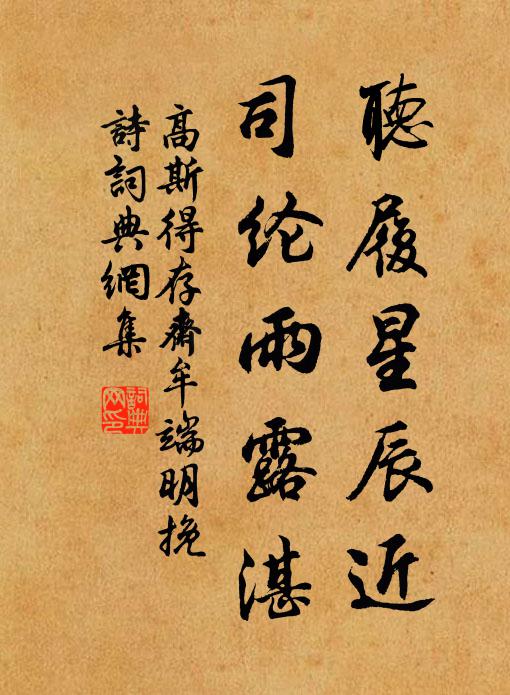 聽履星辰近
司纶雨露湛
高斯得存齋牟端明挽
詩詞典網集
詞典网印